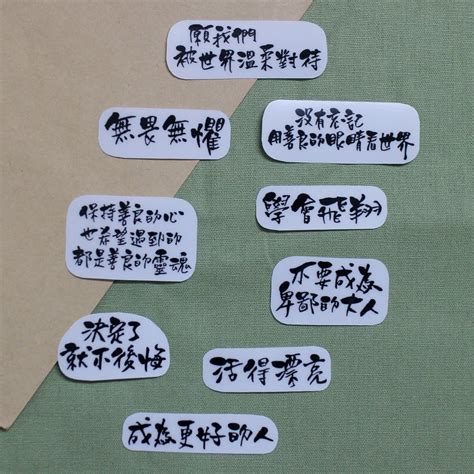 願我們
被世界溫柔對待
無畏無懼
沒有忘記
用善良的眼睛看世界
保持善良的心
也希望遇到的
都是善良的靈魂
學會飛翔
不要成為
卑鄙的大人
決定了
就不後悔
活得漂亮
成為更好的人